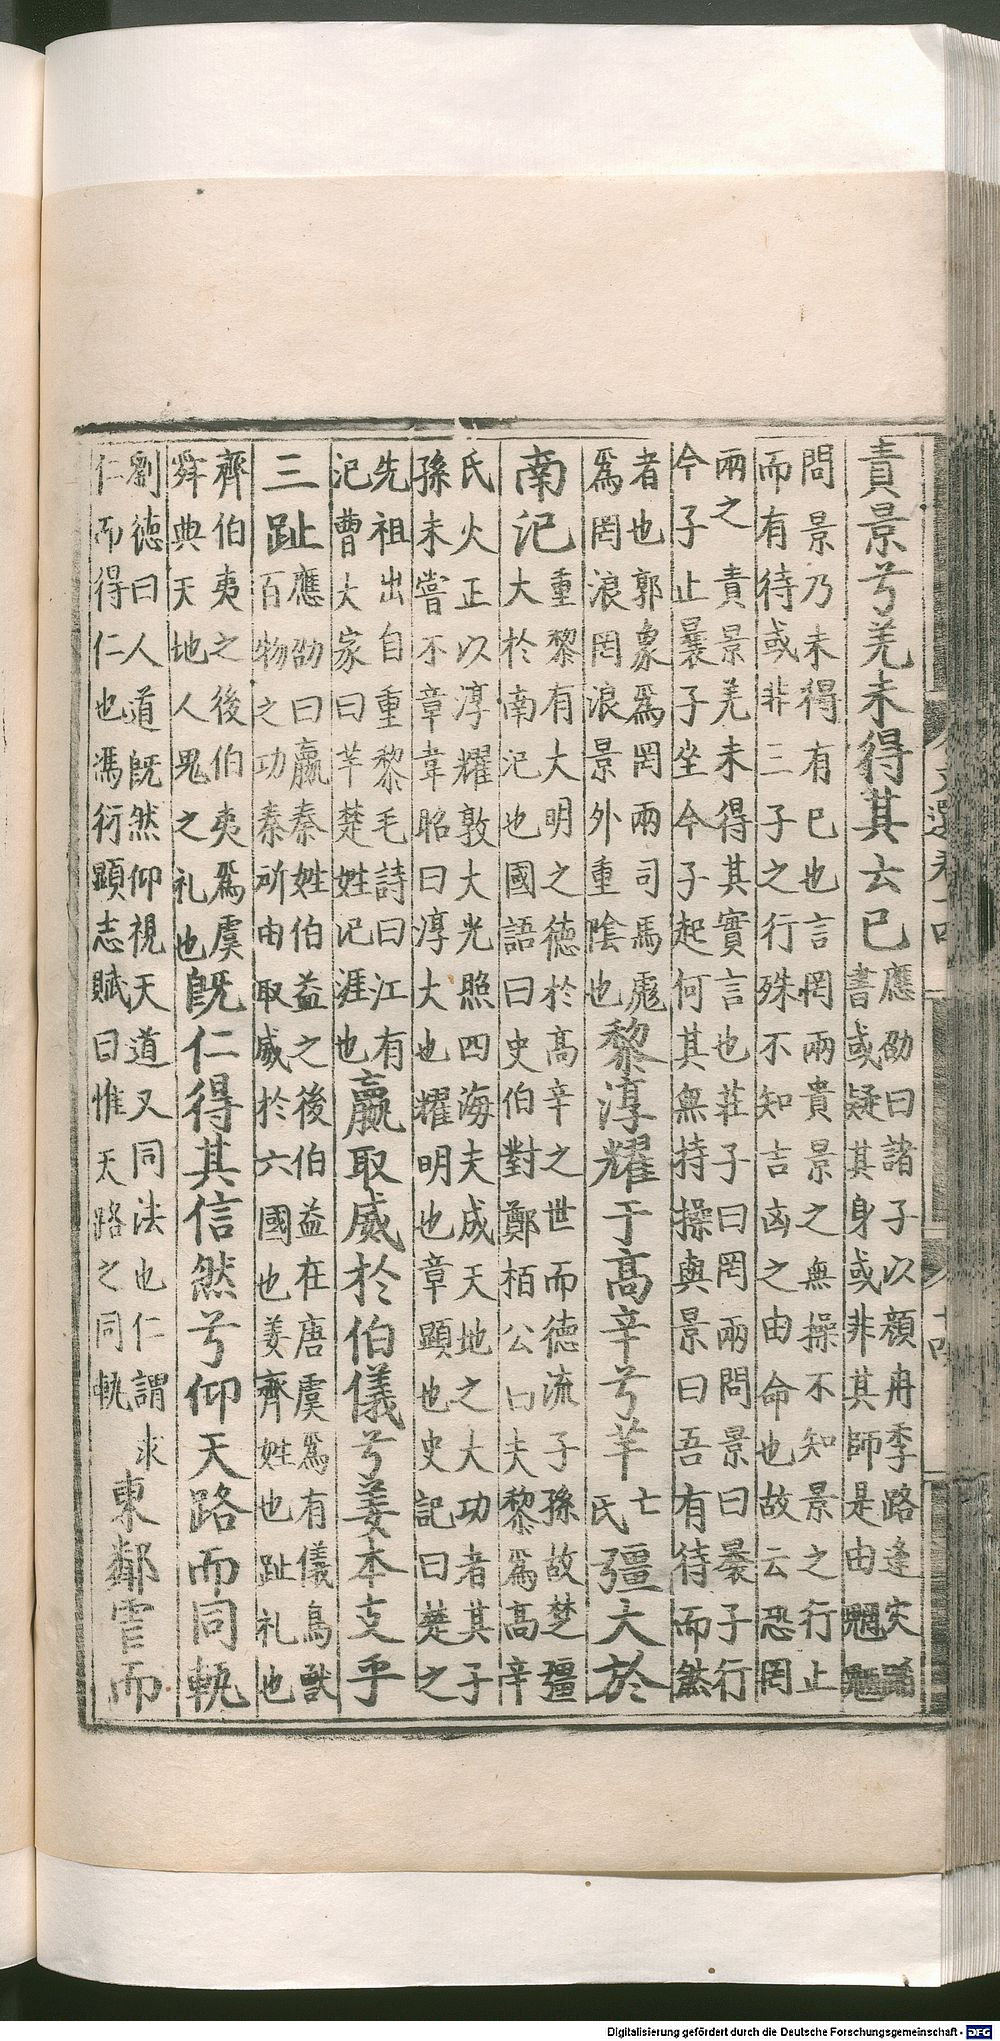 責景兮羌未得其云已應劭曰諸子以顔冉季路逢灾
書或疑其身或非其師是由魍魎
問景乃未得有已也言罔兩責景之無操不知景之行止
而有待或非三子之行殊不知吉凶之由命也故云恐罔
兩之責景羌未得其實言也莊子曰罔兩問景曰曩子行
今子止曩子坐今子起何其無持操與景曰吾有待而然
者也郭象爲罔兩司馬彪
爲罔浪罔浪景外重陰也黎淳耀于高辛兮羋亡
氏彊大於
南汜重黎有大明之德於高辛之世而德流子孫故楚彊
大於南汜也國語曰史伯對鄭栢公曰夫黎爲高辛
氏火正以淳耀敦大光照四海夫成天地之大功者其子
孫未嘗不章韋昭曰淳大也耀明也章顯也史記曰楚之
先祖出自重黎毛詩曰江有
汜曹大家曰羋楚姓汜涯也嬴取威於伯儀兮姜本支乎
三趾應劭曰嬴秦姓伯益之後伯益在唐虞爲有儀鳥獸
百物之功秦所由取威於六國也姜齊姓也趾礼也
齊伯夷之後伯夷爲虞
舜典天地人鬼之礼也旣仁得其信然兮仰天路而同軌
劉德曰人道旣然仰視天道又同法也仁謂求
仁而得仁也馮衍顯志賦曰惟天路之同軌東鄰虐而
文選卷十四
Digitalisierung gefördert durch die Deutsche Forschungsgemeinschaft - DFG